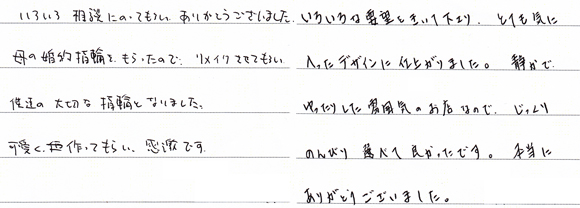 いろいろ 相談にのってもらい ありがとうございました。
母の婚約指輪を もらったので、リメイクさせてもらい
僕達の 大切な 指輪となりました。
可愛く 作ってもらい、感激です。
いろいろな要望を きいて下さり、とても気に
入ったデザインに 仕上がりました。 静かで、
ゆったりした 雰囲気の お店なので、じっくり
のんびり 選べて 良かったです。 本当に
ありがとうございました。